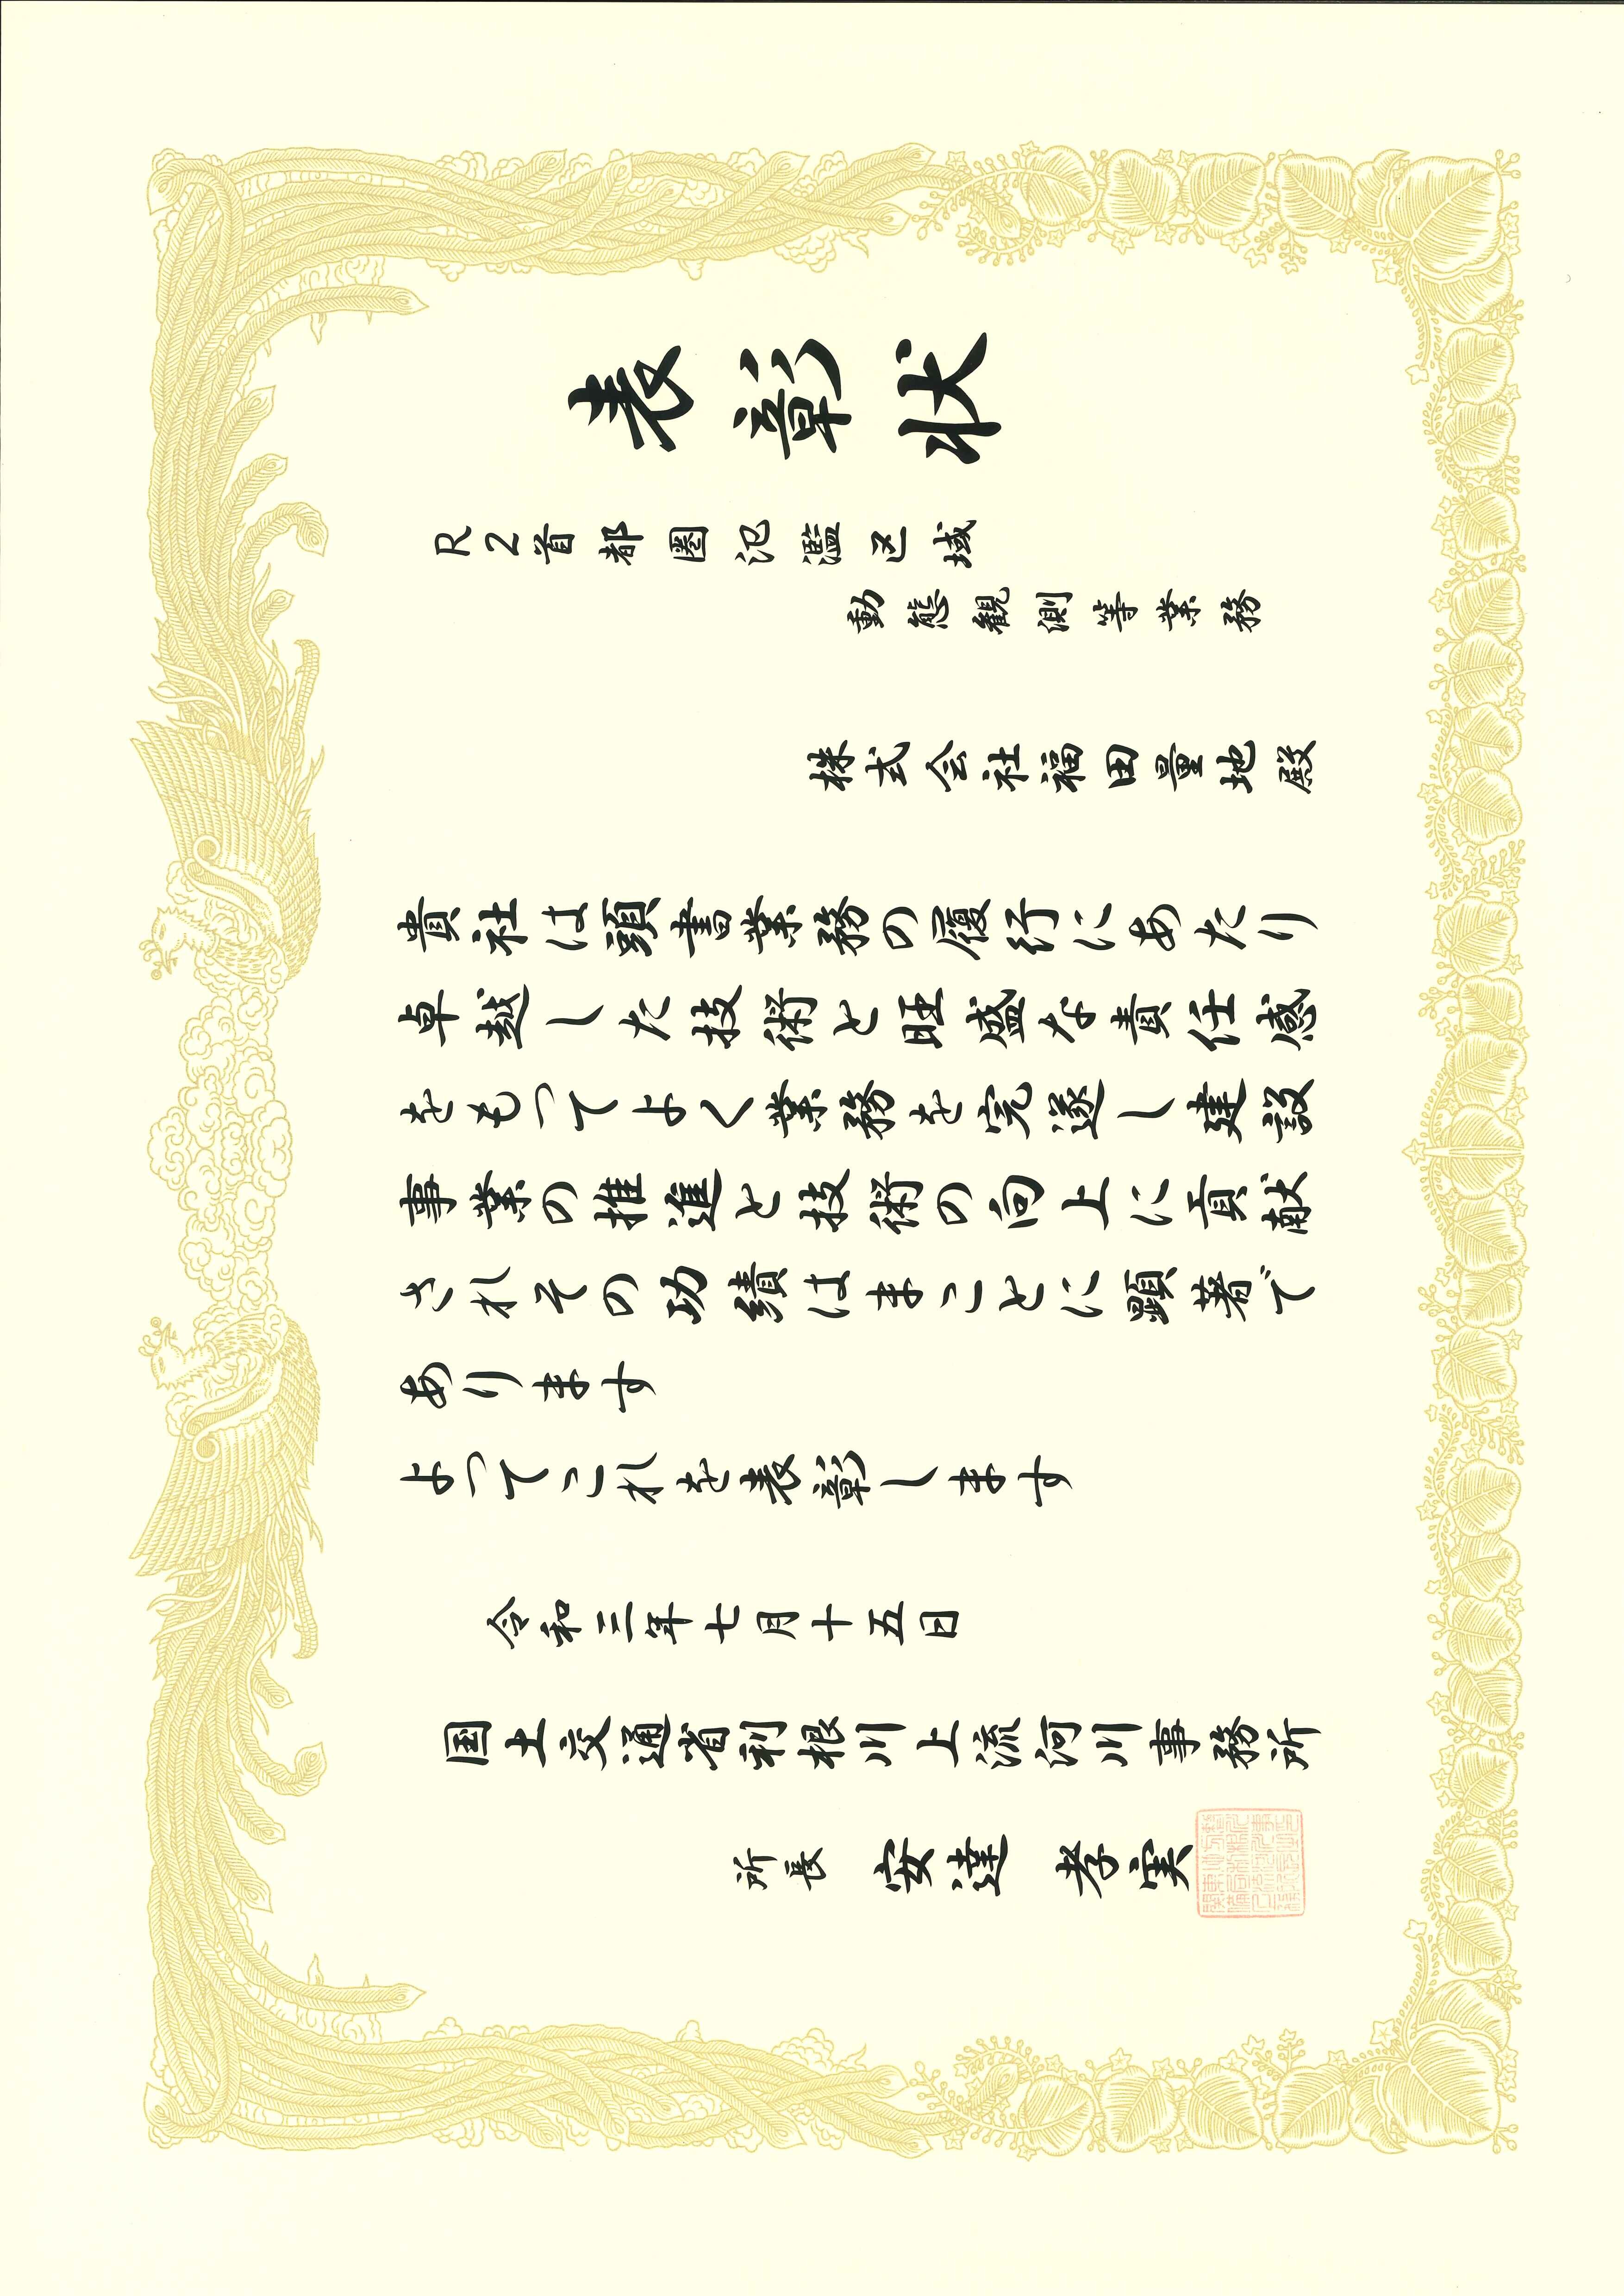 表彰状
R2首都圏氾濫区域
動態観測等業務
株式会社福田量地殿
貴社は頭書業務の履行にあたり
卓越した技術と旺盛な責任感
をもってよく業務を完遂し建設
事業の推進と技術の向上に貢献
されその功績はまことに顕著で
あります
よってこれを表彰します
令和三年七月十五日
国土交通省利根川上流河川事務所
所長 安達 孝実